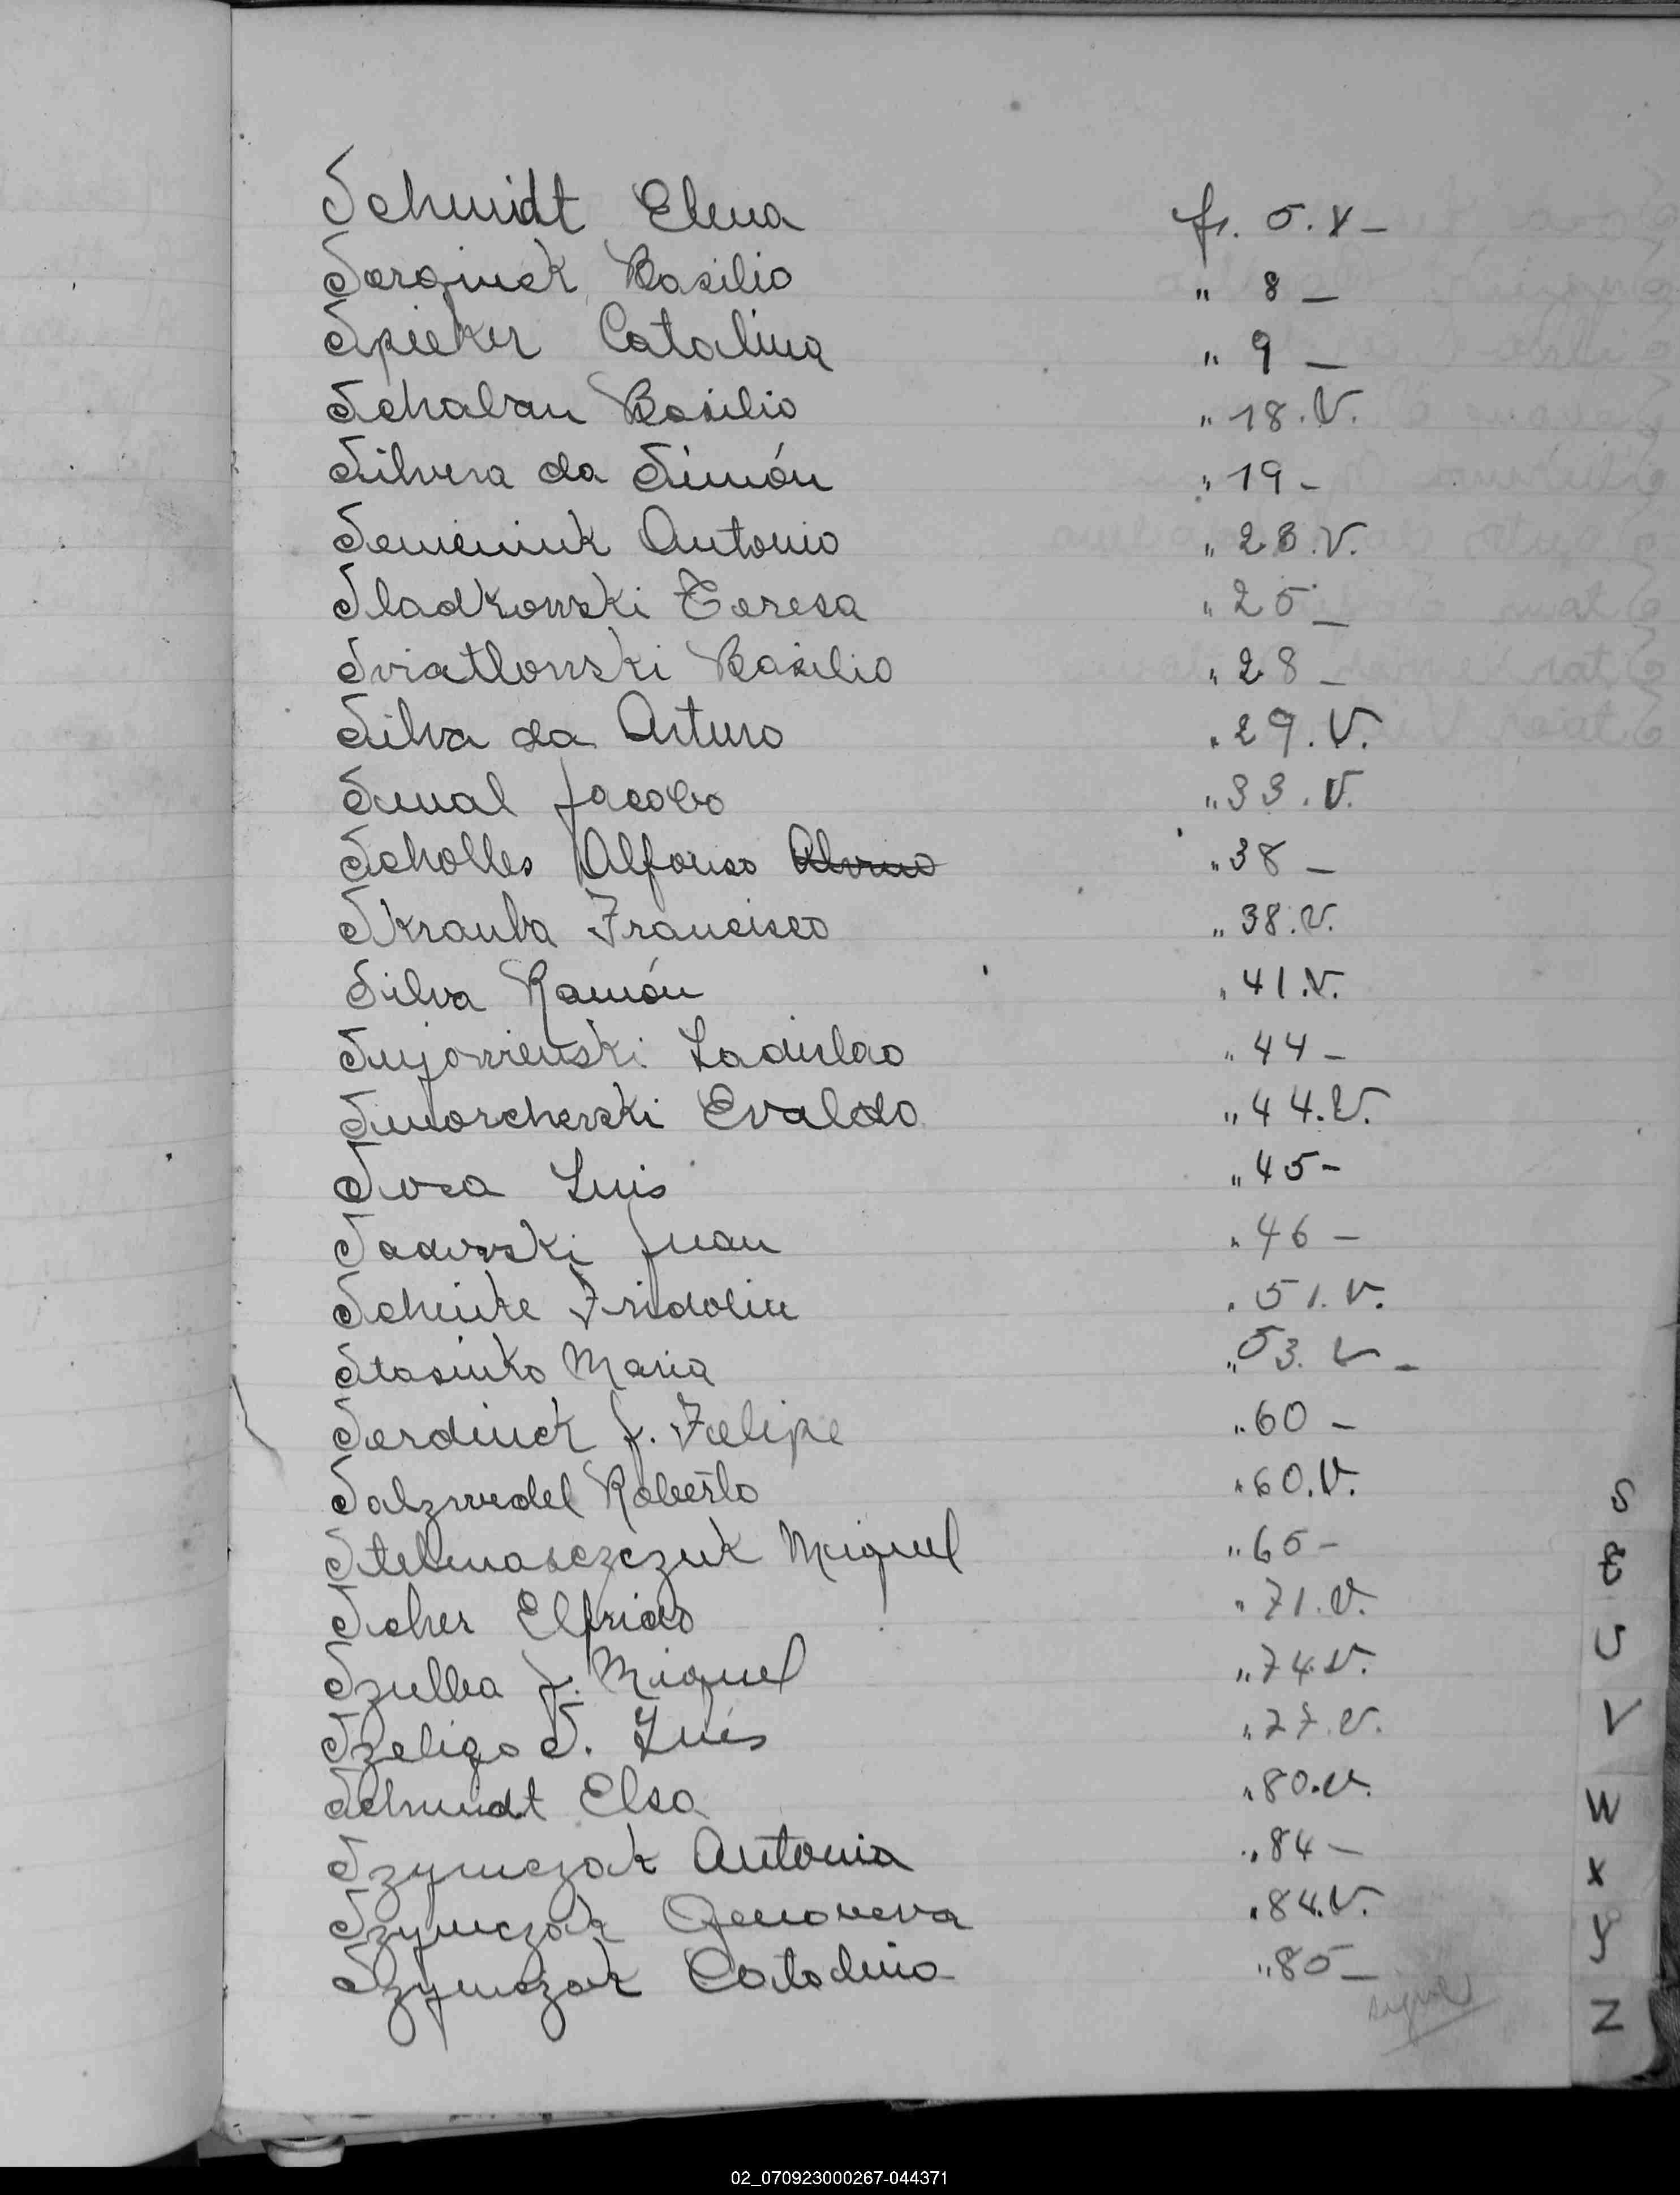 Schmidt Elena fs. 5. V -
Serginek Basilio " 8 -
Spieker Catalina " 9 -
Schaban Basilio " 18. V.
Silvera da Simón " 19 -
Semeniuk Antonio " 23. V.
Sladkowski Teresa " 25 -
Sviatlowski Basilio " 28 -
Silva da Arturo " 29. V.
Senal Jacobo " 33. V.
Scholles Alfonso Alvino " 38 -
Skrauba Francisco " 38. V.
Silva Ramón " 41. V.
Ladislao " 44 -
Smorcherski Evaldo " 44. V.
Sosa Luis " 45 -
Sadovski Juan " 46 -
Schinke Fridolin " 51. V.
Stasinko Maria " 53. V -
Serdiuck J. Felipe " 60 -
Salzwedel Roberto " 60. V.
Stelmasczczuk Miguel " 65 -
Scher Elfrido " 71. V.
Szulba J. Miguel " 74. V.
Szeliga S. Luis " 77. V.
Schmidt Elsa " 80. V.
Szymczak Antonia " 84 -
Szymczak Genoveva " 84. V.
Szymczak Catalina " 85 -
S
T
U
V
W
X
Y
Z
02_070923000267-044371